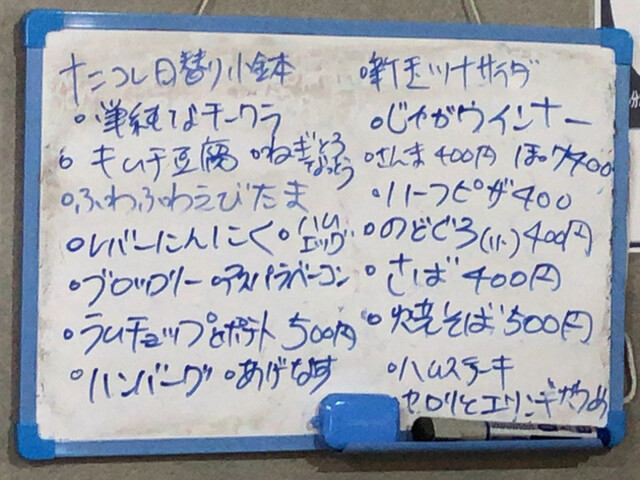 ナニコレ日替り小鉢
○単純なチークラ
○キムチ豆腐 ○ねぎとろなっとう
○ふわふわえびたま
○レバーにんにく ○ハムエッグ
○ブロッコリー ○アスパラベーコン
○ラムチョップとポテト 500円
○ハンバーグ ○あげなす
○新玉ツナサラダ
○じゃがウインナー
○さんま400円 ほっけ400
○ハーフピザ400
○のどぐろ(ハーフ)400円
○さば400円
○焼そば500円
○ハムステーキ
セロリとエリンギ
分